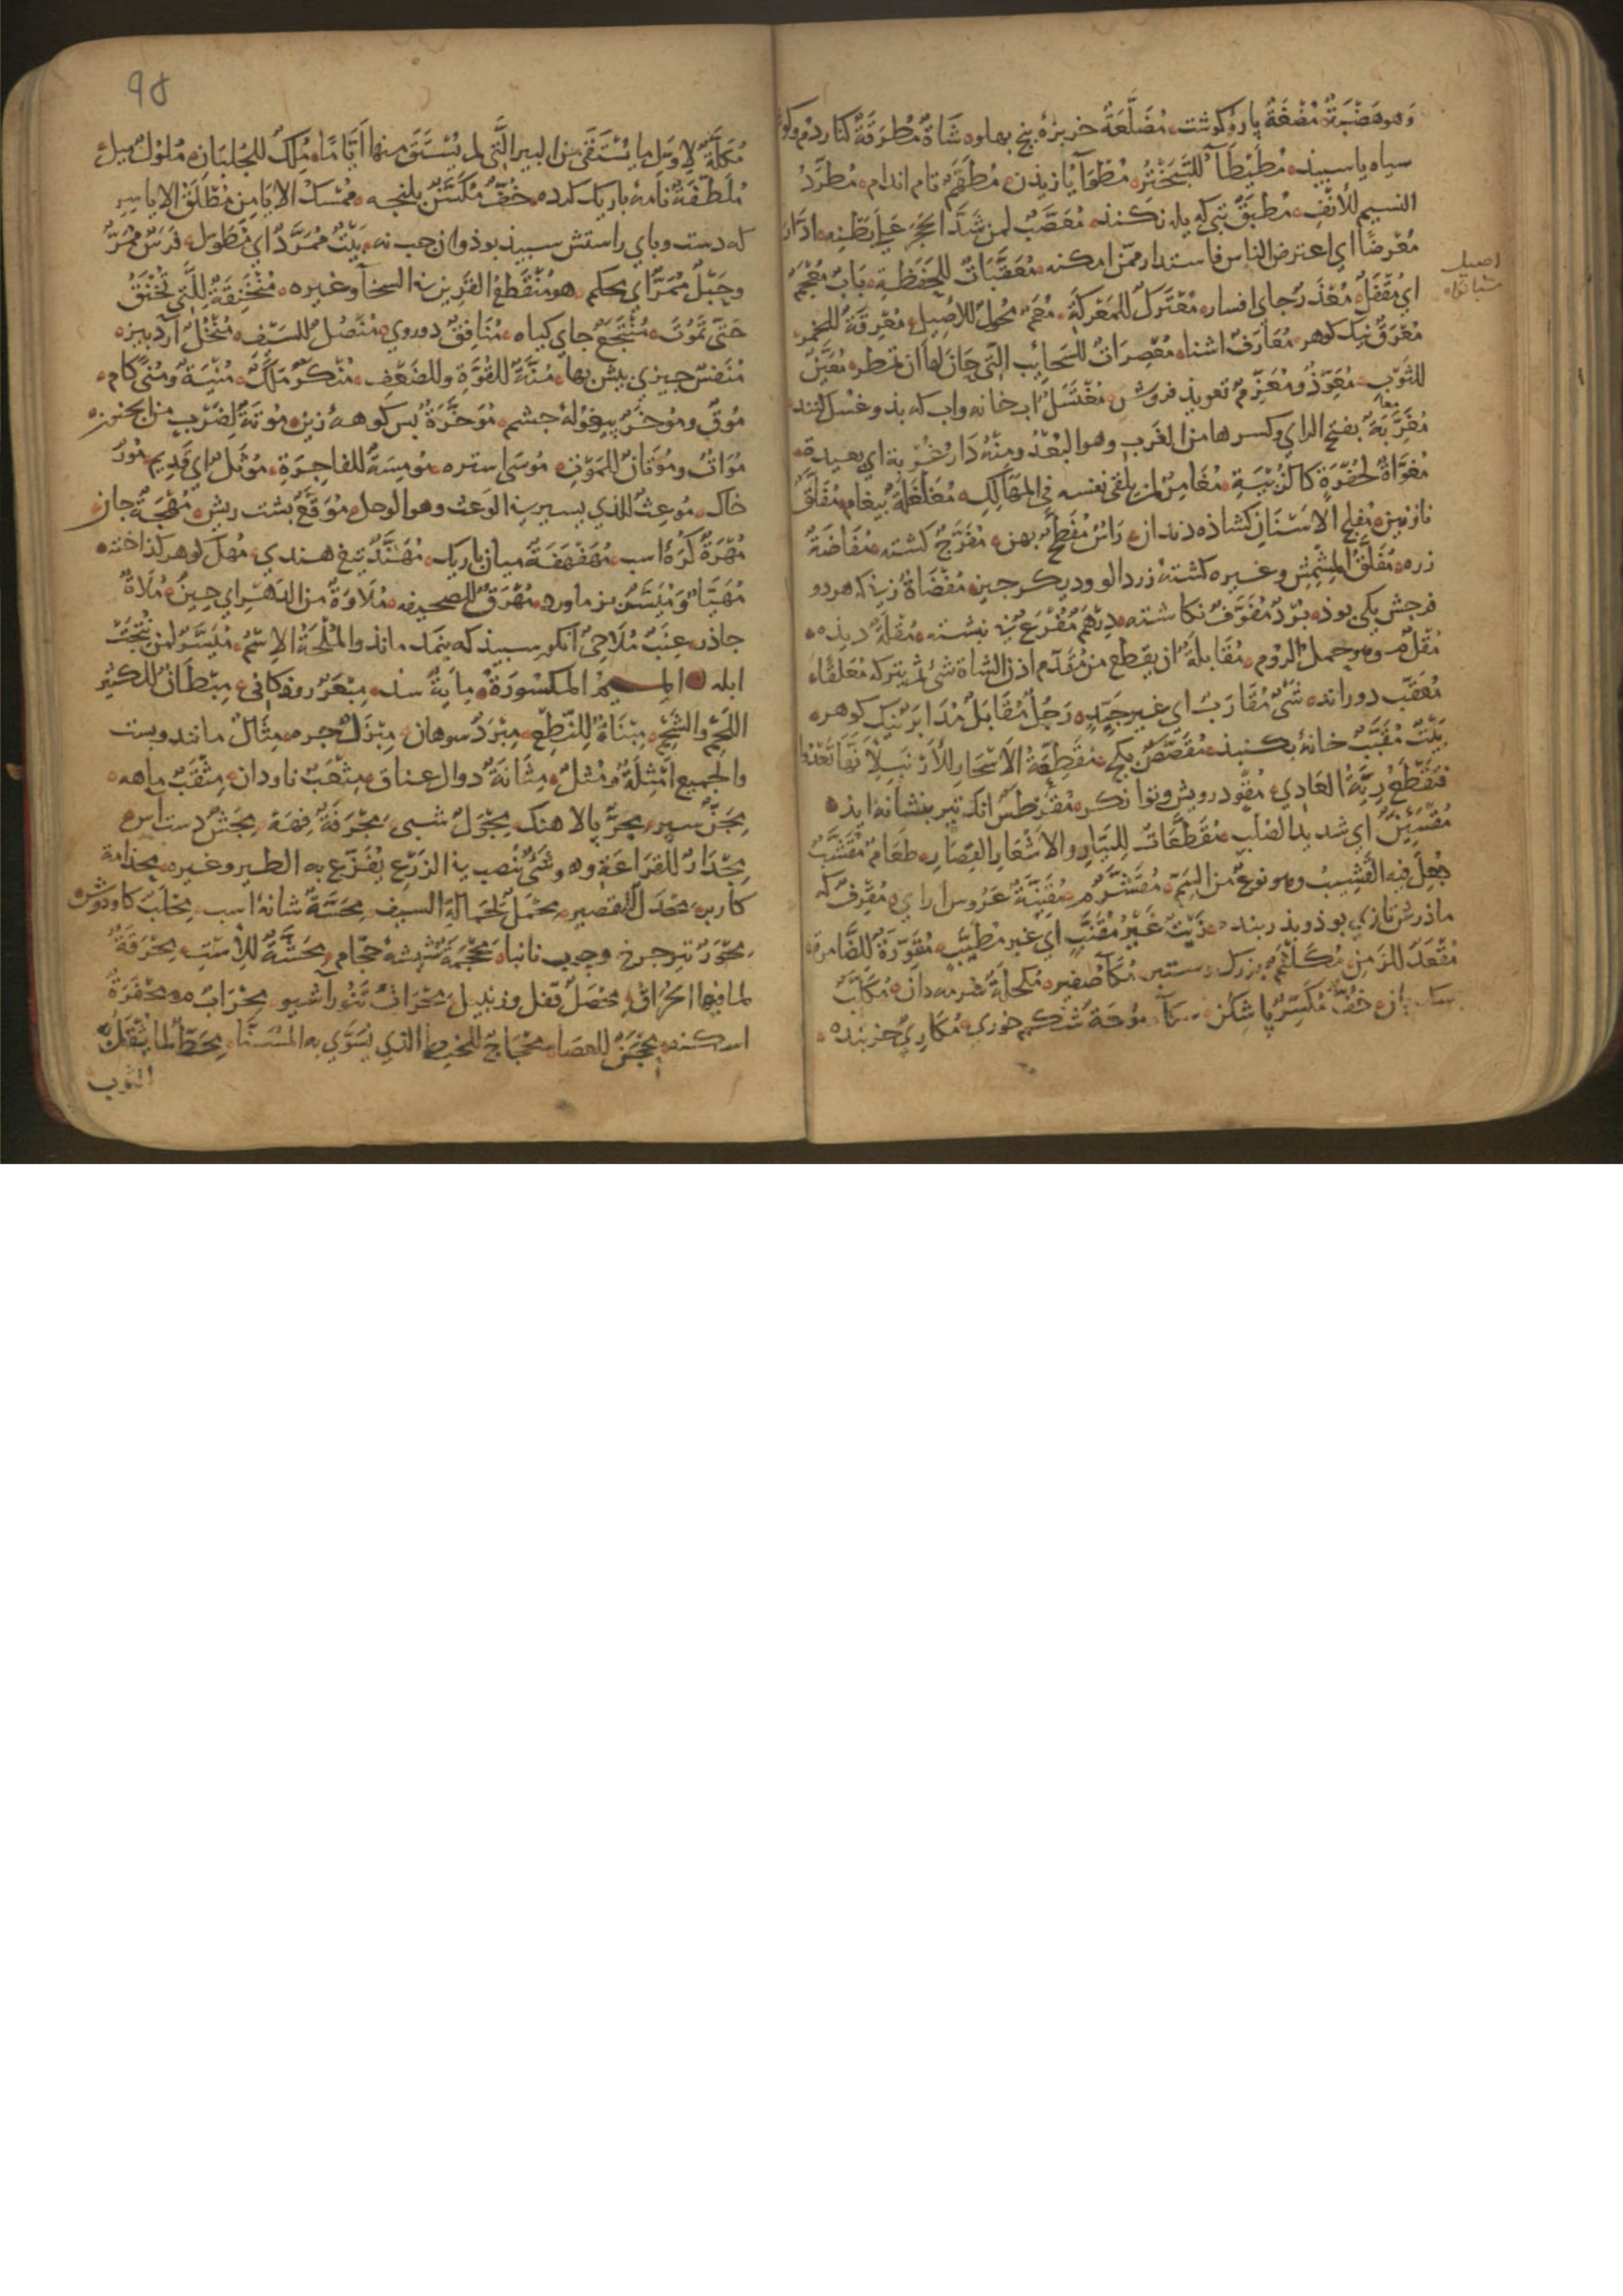 وهو هَضْبَةٌ مُضْغَةٌ پارهٔ كوشت مُضَلَّعَةٌ خربزهٔ پنج بهلوه شَاةٌ مُطْرَفَةٌ كنار دم وكوش
سياه يا سپيذ مُطَيْطَآ للتَّبَخْتُرُ مُطَوَّآ يازيذن مُطَهَّمٌ تام اندام مُطَرَّدُ
النسيم للأنف مُطبِقٌ تبى كه يله نكنذ مُعَصَّبٌ لمن شَدَّ الحَجَرَ على بَطْنِه ادّان
مُعْرِضًا اي اعترض الناس فاستدار ممّن امكنه مُعَقِّبَاتٌ للحَفَظَةِ بَابٌ مُعْجَمٌ
اي مُقْفَلٌ مُعَذَّرٌ جاى افسار مُعْتَرَكٌ للمَعْرَكَةِ مُعِمٌّ مُخْوِلٌ للأصيل مُعْرَقَةٌ للخمر
اصيل
مُعْرَقٌ نيك كوهر مُعَارَفٌ اشنا مُعْصِرَاتٌ للسَحايِب الَّتي حَانَ لهَا ان تمطر مُعَيَّنٌ
للثَوبِ مُعَوِّذٌ ومُعَزِّمٌ تعويذ فروش مُغْتَسَلٌ اب خانه واب كه بذو غسل كنند
معا
مُغَرِّبَةٌ بفتح الراي وكسرها من الغَرب وهو البُعْدُ ومنْهُ دَارٌ غَرْبَة اي بعيدة
مُغَوَّاةٌ لحُفْرَةٍ كالزُبْيَةِ مُغَامِسٌ لمن يلقى نفسه فى المَهَالِكِ مُغَلْغَلَةٌ بيغام مُفَلَّقٌ
نازنين مُفَلَّجُ الاسْنَانِ كشاذه دندان رَاسٌ مُفَطَّحٌ بهن مُفَرَّجٌ كشته مُفَاضَةٌ
زره مُفَلَّقُ المِشْمِشِ وغيره كشتهٔ زردالو وديكر جيز مُفْضَاةٌ زنى كه هر دو
فرجش يكى بوذ بُرْدٌ مُفَوَّفٌ نكاشته دِرْهَمٌ مُفْرَغٌ نبشته مُقْلَةٌ ديذه
مُقْلٌ وهو حمل الدوم مُقَابَلَةٌ ان يقطع من مُقَدَّم اذن الشاة شىٌ ثم يترك مُعلقًا
مُعَقَّب دورانده شَىٌ مُقَارَبٌ اي غير جَيِّدٍ رَجُلٌ مُقَابَلٌ مُدَابَرٌ نيك كوهر
بَيْتٌ مُقَبَّبٌ خانهٔ بكنبذ مُقَصَّصٌ بكج مُقَطِّعَةُ الاَسْحَارِ للأرْنَبِ لاَنَهَا تَعْدُوا
فتُقَطِّعُ رِيَّةَ العَادِي مُقْوٍ درويش وتوانكر مُقَرْطِسٌ انك تير بنشانه ايذ
مُقْسَئِنٌّ اي شديد الصُلْب مُقَطَّعَاتٌ للثيَّابِ والاشْعَارِ القِصَارِ طَعَامٌ مُقَشَّبٌ
جُعِلَ فيه القَشِيبُ وهو نوعٌ من السَمّ مُقَيِّنَةٌ عَرُوس اراي مُقْرِفٌ كه
ماذرش تازي بوذ وبذر بنده زَيْتٌ غَيْرُ مُقَتَّتٍ اي غير مُطَيَّبٍ مُقْوَرَّةٌ للضَّامِرَةِ
مُقْعَدٌ للزَمِنِ مُكَلْثَمٌ بزرك وستبر مُكَّآ صفير مُكْحُلَةٌ سُرمه دان مُكَلِّبٌ
خُفٌّ مُكَسَّرٌ با شكن شكم خوري مُكَارِيٌ خربنده
98
مُكْلَةٌ لاوّل ما يُسْتَقَى من البير الَّتي لم يُسْتَقَ منها اَيَّامًا مُلْكٌ للجُلبَان مُلوُلٌ ميل
مُلَطَّفَةٌ نامهٔ باريك كرده خُفٌّ مُلَسَّنٌ بلنجه مُمْسَكُ الايَامِن مُطْلَقُ الاياسِر
كه دست وباي راستش سبيذ بوذ وان جب نه بَيْتٌ مُمَرَّدٌ اي مُطَوَّل فَرَسٌ مُمَرٌّ
وحَبْلٌ مُمَرٌّ اي محكم هو مُنْقَطِعُ القَرِينِ فى السخآ وغيره مُنْخَنِقَةٌ للَّتي تُخْنَقُ
حَتَّى تَمُوتَ مُنْتَجَعٌ جاي كياه مُنَافِقٌ دوروي مُنْصُلٌ للسَيْف مُنْخُلٌ آرد بيز
مُنْفِسٌ جيزي بيش بها مُنَّةٌ للقُوَّةِ وللضَعْفِ مُنْكَرٌ مَلَكٌ مُنْيَةٌ ومُنًى كام
مُوقٌ ومُوخرٌ بيغولهٔ جشم مُوَخَّرَةٌ بس كوههٔ زين مُوتَةٌ لضَرْبٍ من الجنون
مُوَاتٌ ومُوتَانٌ للمَوْتِ مُوسَى استره مُومِسَةٌ للفاجِرَةِ مُوثَّلٌ اي قَدِيم مُورٌ
خاك مُوعِثٌ للذي يسير فى الوَعث وهو الوحل مُوَقَّعٌ بشت ريش مُهْجَةٌ جان
مُهْرَةٌ كُرّهٔ اسب مُهَفْهَفَةٌ ميان باريك مُهَنَّدٌ تيغ هندي مُهْلٌ كوهر كذاخته
مُهَيَّاٌ وَمُيَسَّرٌ بزماورد مُهْرَقٌ للصحيفه مُلاوَةٌ من الدَهْرِ اي حِينٌ مُلاَةٌ
جاذر عِنَبٌ مُلاَحِيٌّ انكور سبيذ كه بنمك ماند والمُلْحَةُ الاِسْمُ مُيَسَّرٌ لمن نُتِجَتْ
ابله الميمُ المكسُورَةُ مِايَةٌ سذ مِبْعَرٌ روذكانى مِبْطَانٌ للكثير
اللحْمِ والشَحْمِ مِبْنَاةٌ لِلنّطْعِ مِبْرَدٌ سوهان مِبْزَلٌ جره مِثَالٌ مانند وبست
والجميع اَمْثِلَةٌ ومُثْلٌ مِثَانَةٌ دوال عناق مِثْعَبٌ ناودان مِثْقَبٌ ماهه
مِجَنٌّ سپر مِجَرٌّ بالاهنك مِجْوَلٌ شبى مِجْرَفَةٌ فهه مِجَشٌّ دست آس
مِجْدَارٌ للفَزَّاعَةِ وهو شَىٌ تُنصب فى الزَرْعِ يُفَزَّع به الطير وغيره مِجذامة
كاربر مِجْدَلٌ للقصير مِحْمَلٌ لحَمَالَةِ السيف مِحَسَّةٌ شانهٔ اسب مِحْلَبٌ كاودوش
مِحْوَرٌ تير جرخ وجوب نانبا مِحْجَمَةٌ شيشهٔ حجّام مِحَشَّةٌ للاِسْتِ مِحْرَقَةٌ
لما فيها الحُرَّاق مِحْصَلٌ قفل وزنبيل مِحْرَاثٌ تَنُور آشيو مِحْرَابٌ مِحْفَرَةٌ
اسكنه مِحْجَنٌ للعَصَا مِحْجَاجٌ للخَيط الذي يُسَوَّي به المُسَنَّا مِحَطٌّ لما يُنْقَشُ بِهِ
الثوب